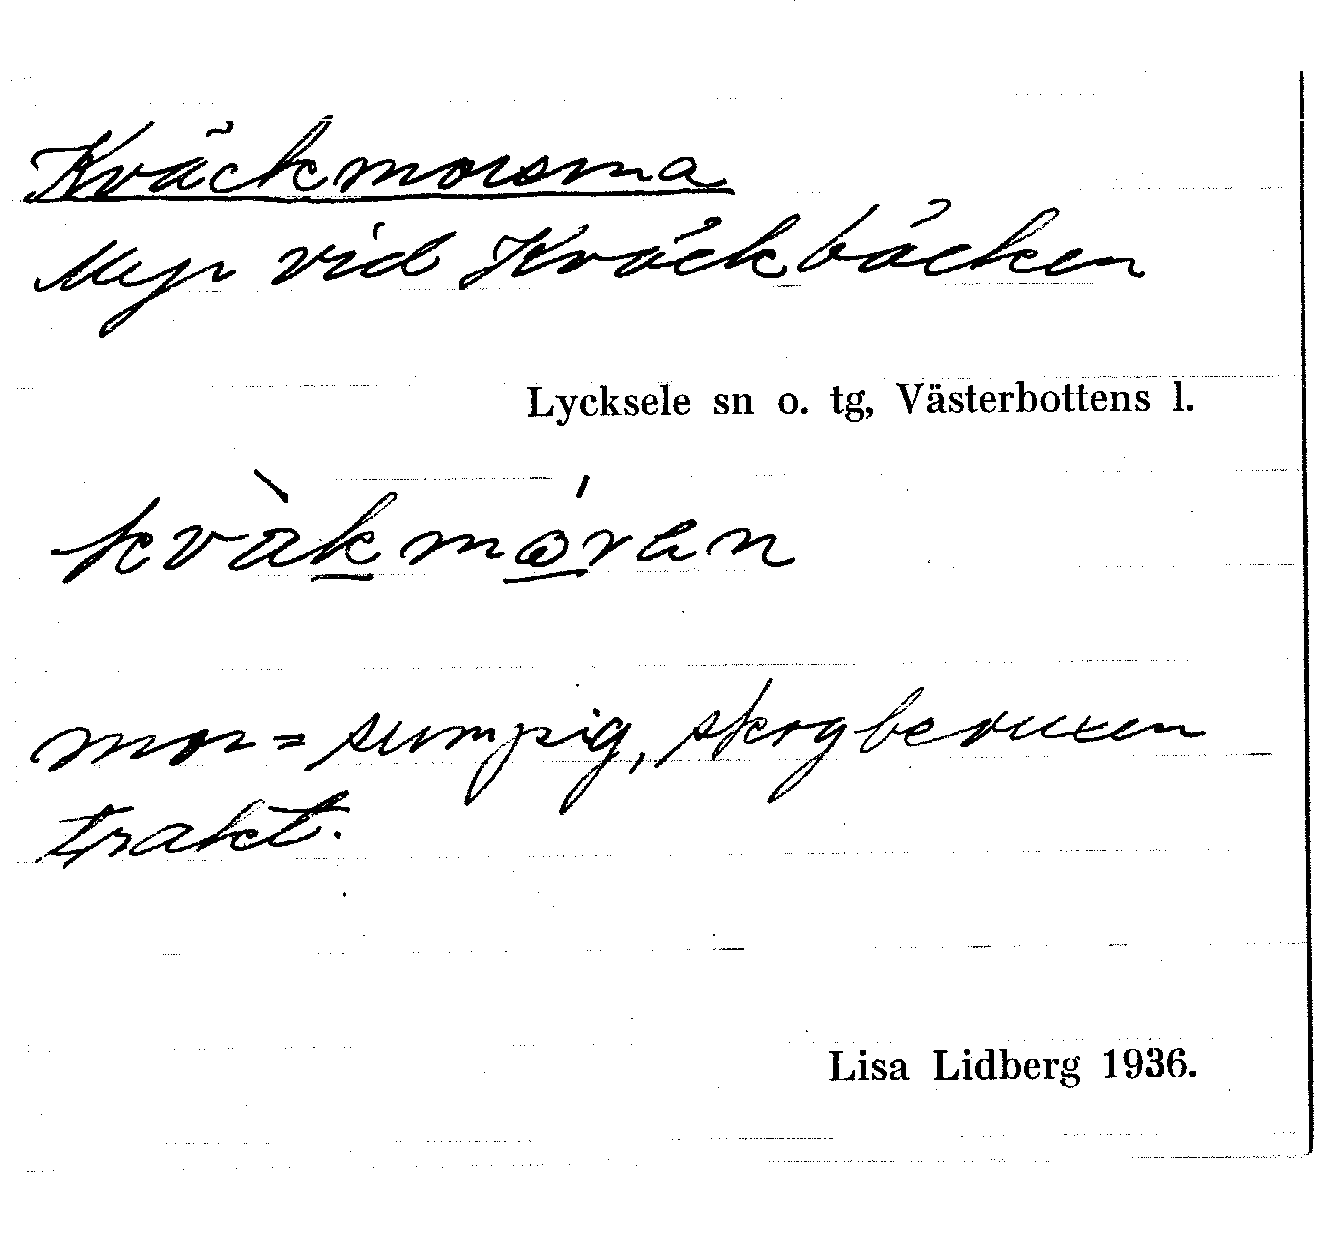 Kväckmorarna
Myr vid Kväckbäcken
Lycksele sn o. tg, Västerbottens l.
mor = sumpig, skogbevuxen
trakt.
Lisa Lidberg 1936.